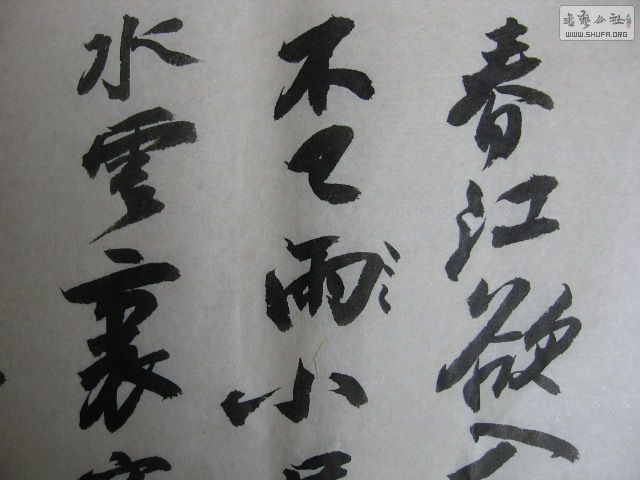 春江欲入
不已雨小
水雲裏
書藝公社
WWW.SHUFA.ORG